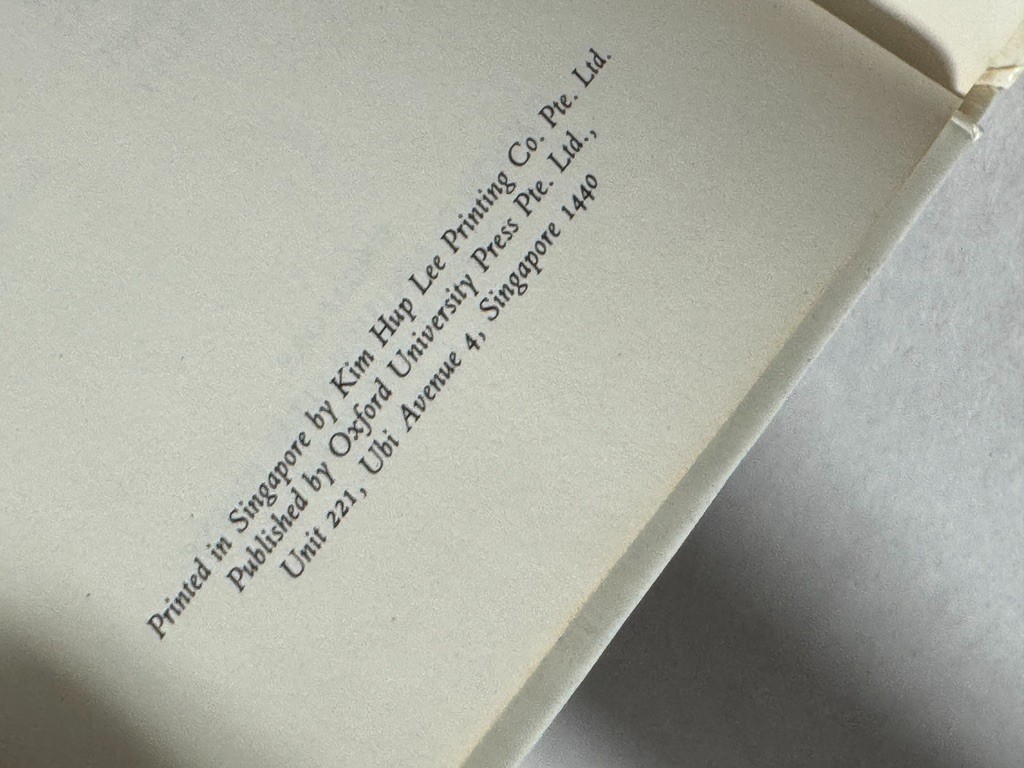 Printed in Singapore by Kim Hup Lee Printing Co. Pte. Ltd.
Published by Oxford University Press Pte. Ltd.,
Unit 221, Ubi Avenue 4, Singapore 1440